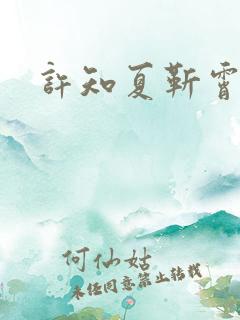 許知夏靳霄
何仙姑
未经同意禁止转载